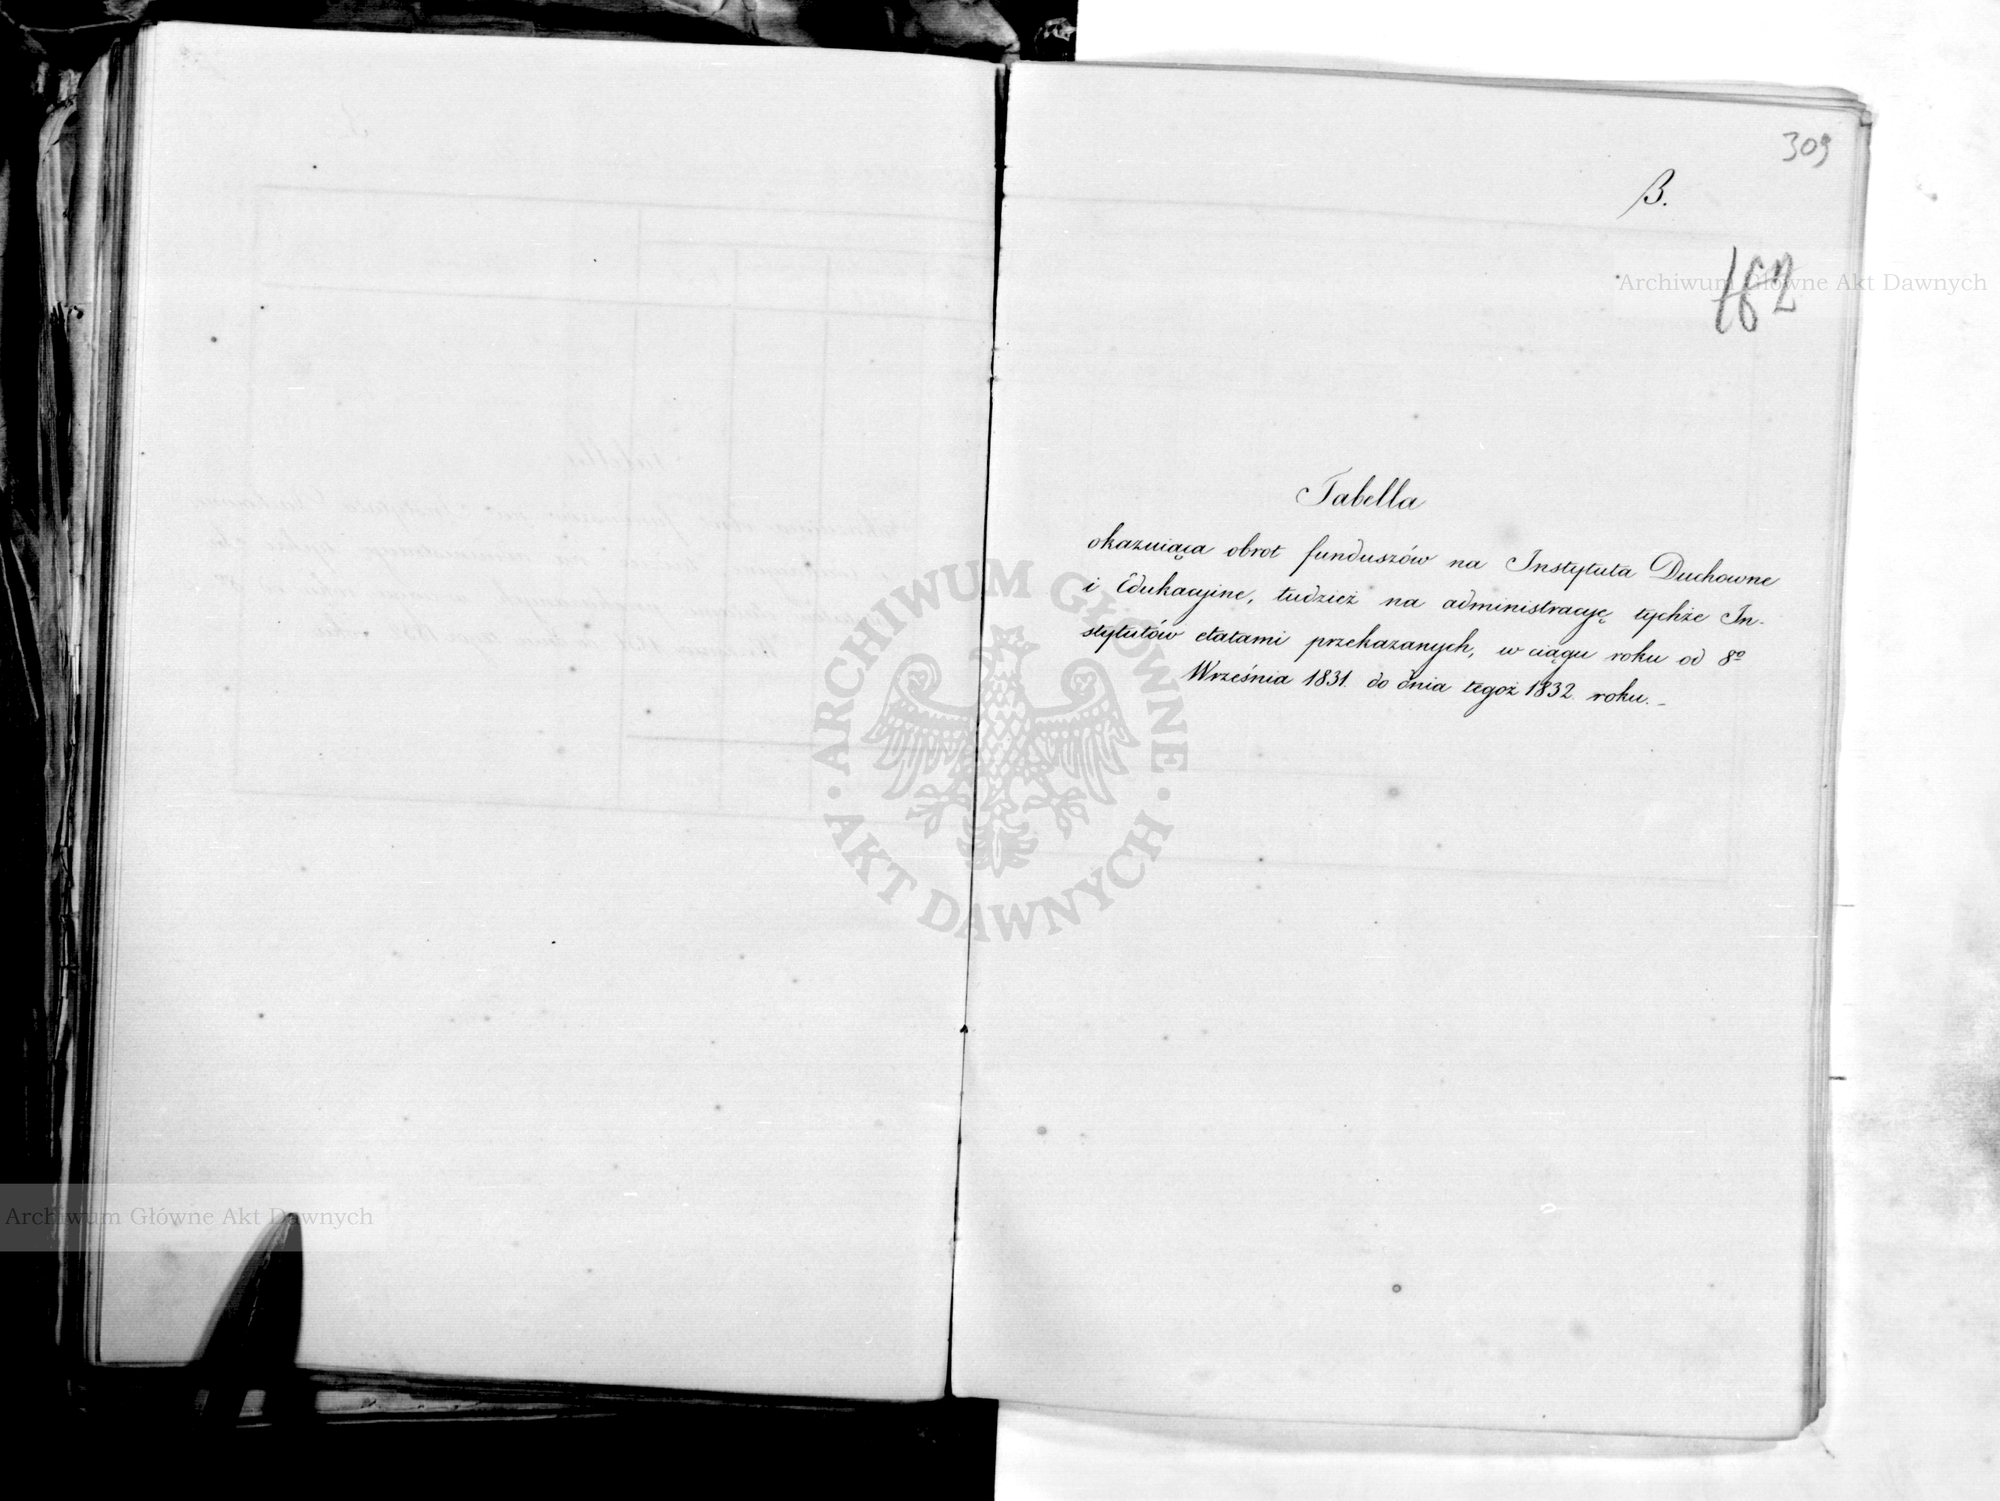 309
B.
162
Archiwum Główne Akt Dawnych
Tabella
okazuiąca obrot funduszów na Instytuta Duchowne
i Edukacyine, tudzież na administracyę tychże In-
stytutów etatami przekazanych, w ciągu roku od 8º
Września 1831. do dnia tegoż 1832. roku.-
ARCHIWUM GŁÓWNE
· AKT DAWNYCH ·
Archiwum Główne Akt Dawnych